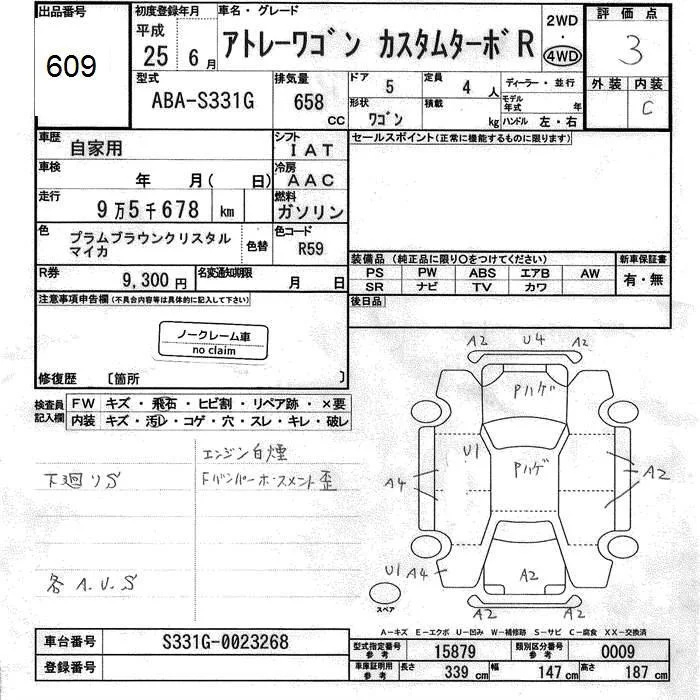 出品番号
609
初度登録年月
平成
25年 6月
車名・グレード
アトレーワゴン カスタムターボR
2WD
・
4WD
評価点
3
型式
ABA-S331G
排気量
658 CC
ドア 5
定員 4 人
ディーラー・並行
形状 ワゴン
積載 kg
モデル年式 年
ハンドル 左・右
外装 内装
C
車歴 自家用
シフト IAT
セールスポイント(正常に機能するものに限ります)
車検 年 月( 日)
冷房 AAC
走行 9万5千678 km
燃料 ガソリン
色 プラムブラウンクリスタルマイカ
色替
色コード R59
装備品(純正品に限り○をつけてください)
PS PW ABS エアB AW
SR ナビ TV カワ
新車保証書
有・無
R券 9,300円
名変通知期限 月 日
後日品
注意事項申告欄(不具合内容等は具体的に記入して下さい)
ノークレーム車
no claim
修復歴 〔箇所 〕
検査員記入欄
FW キズ・飛石・ヒビ割・リペア跡・×要
内装 キズ・汚レ・コゲ・穴・スレ・キレ・破レ
エンジン白煙
下廻リS
Fバンパーホースメント歪
各A.U.S
A2 U4 A2
Pハゲ
U1
Pハゲ
A4
A2
U1 A4
A2
A2 A2
スペア
A-キズ E-エクボ U-凹み W-補修跡 S-サビ C-腐食 XX-交換済
車台番号 S331G-0023268
登録番号
型式指定番号 参考 15879
類別区分番号 参考 0009
車庫証明用 参考
長さ 339 cm
幅 147 cm
高さ 187 cm